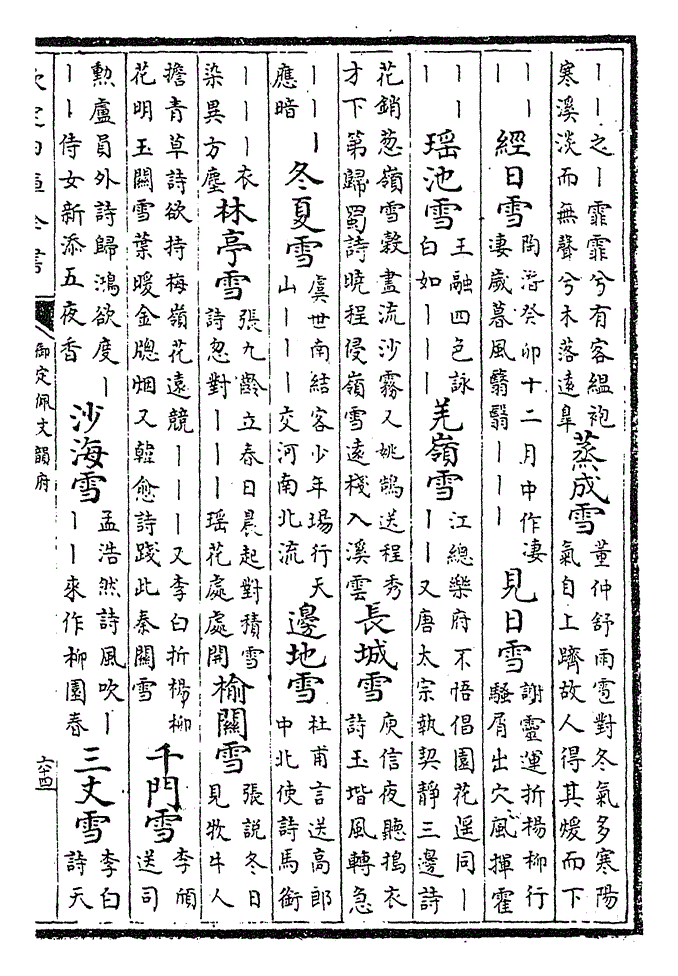 丨丨之丨霏霏兮有客緼袍
寒溪淡而無聲兮未落遠皐
蒸成雪
董仲舒雨雹對冬氣多寒陽
氣自上躋故人得其煖而下
丨丨
丨
經日雪
陶潛癸卯十二月中作凄
凄歲暮風翳翳丨丨丨
見日雪
謝靈運折楊柳行
騷屑出穴風揮霍
丨丨
丨
瑶池雪
王融四色詠
白如丨丨丨
羌嶺雪
江總樂府不悟倡園花遥同丨
丨丨又唐太宗執契靜三邊詩
花銷葱嶺雪縠盡流沙霧又姚鵠送程秀
才下第歸蜀詩曉程侵嶺雪遠棧入溪雲
長城雪
庾信夜聽搗衣
詩玉堦風轉急
丨丨丨
應暗
冬夏雪
虞世南結客少年場行天
山丨丨丨交河南北流
邊地雪
杜甫言送高郎
中北使詩馬銜
丨丨丨衣
染異方塵
林亭雪
張九齡立春日晨起對積雪
詩忽對丨丨丨瑶花處處開
榆關雪
張説冬日
見牧牛人
擔青草詩欲持梅嶺花遠競丨丨丨又李白折楊柳
花明玉關雪葉暖金牕烟又韓愈詩踐此秦關雪
千門雪
李頎
送司
勲盧員外詩歸鴻欲度丨
丨丨侍女新添五夜香
沙海雪
孟浩然詩風吹丨
丨丨來作柳園春
三丈雪
李白
詩天
欽定四庫全書
御定佩文韻府
六十四